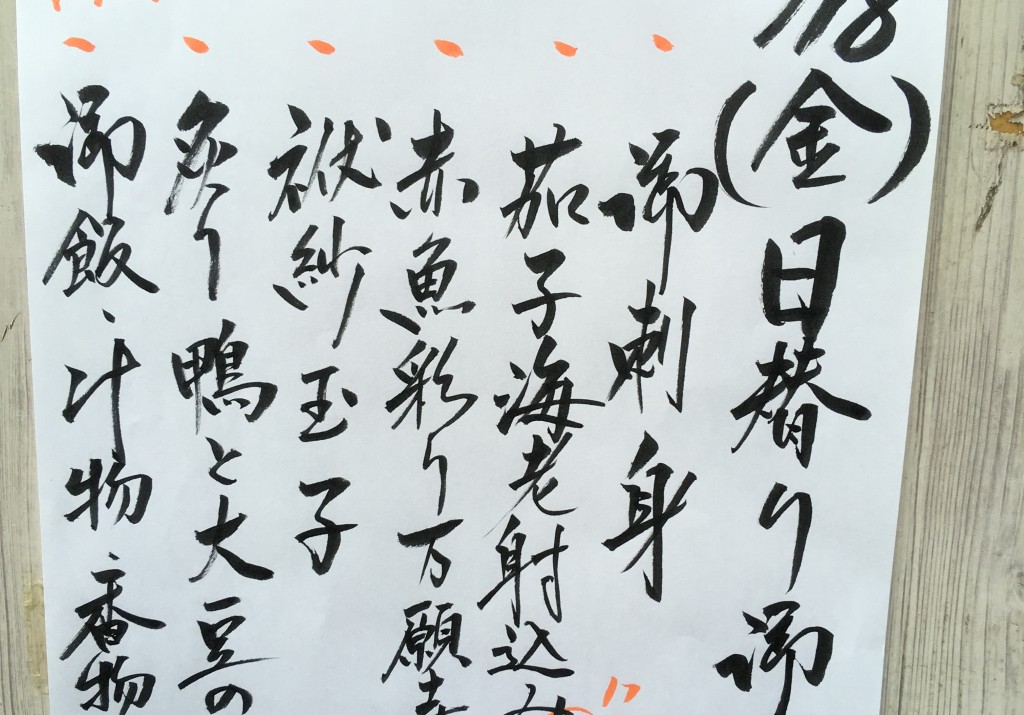 18(金)日替り御
御刺身
茄子海老射込み
赤魚彩り万願
袱紗玉子
炙り鴨と大豆の
御飯、汁物、香物